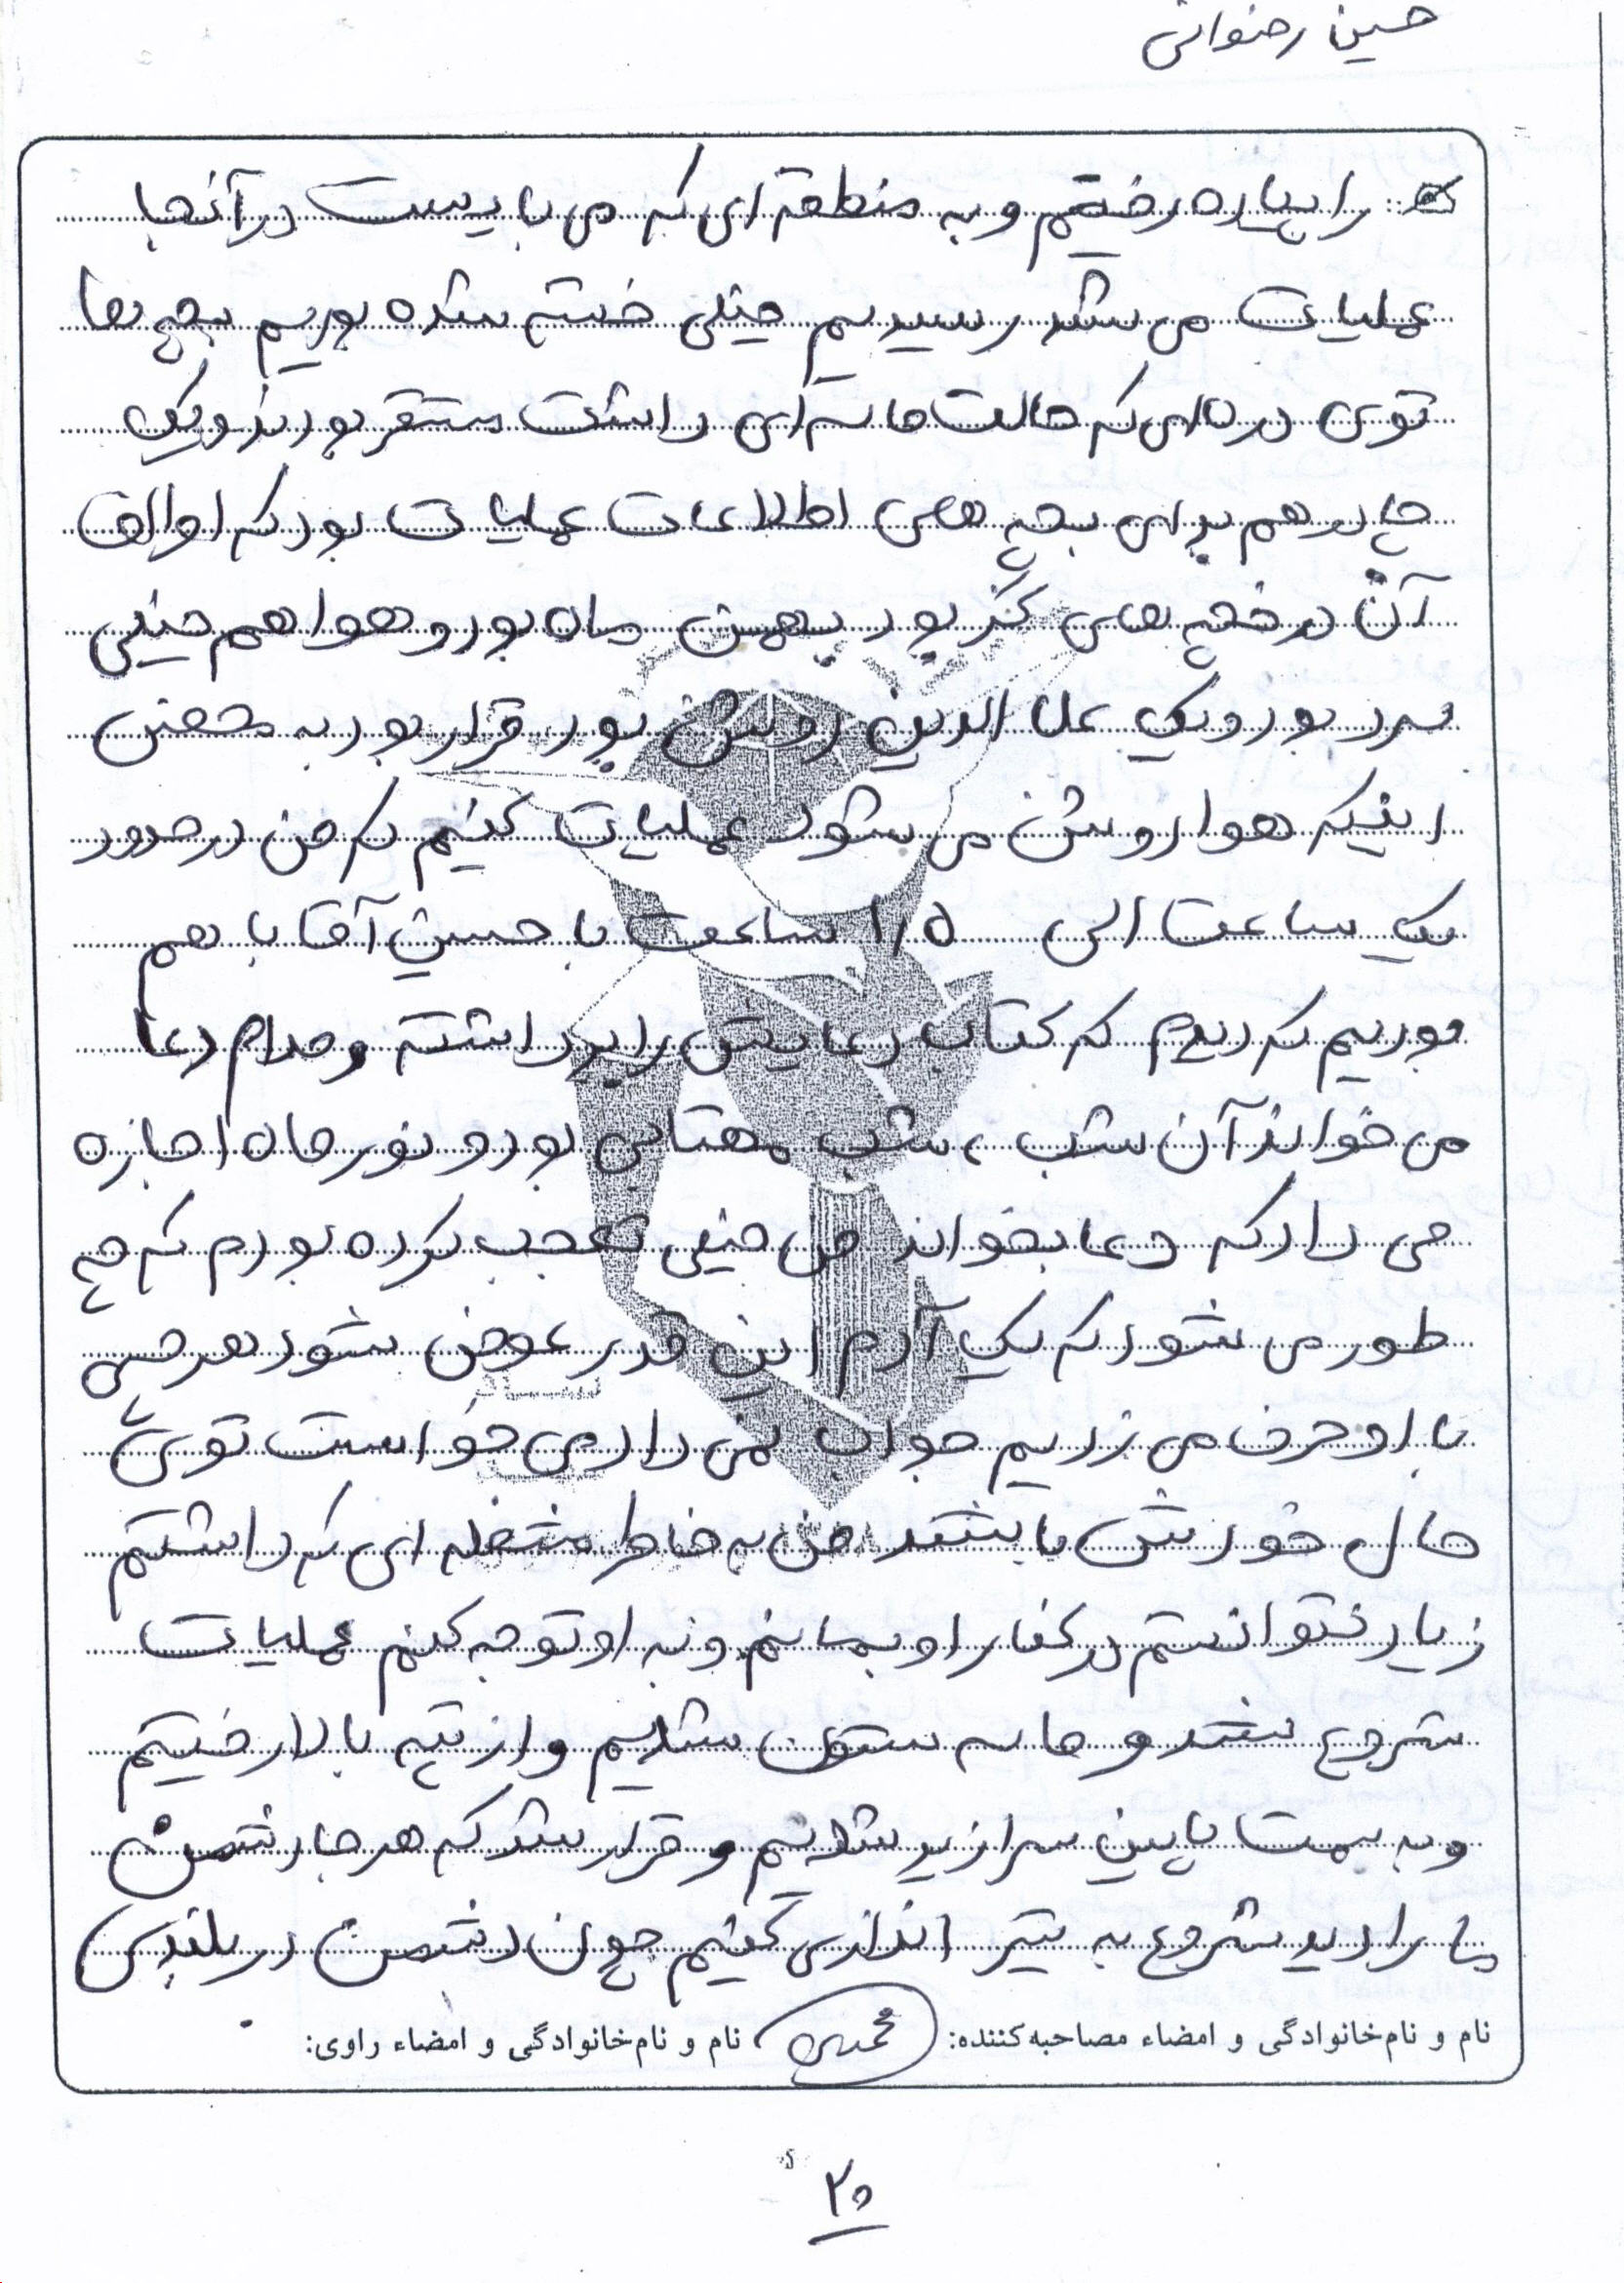 حسین رضوانی
را پیاده رفتیم و به منطقه ای که می بایست در آنجا
عملیات می شد رسیدیم خیلی خسته شده بودیم بچه ها
توی دره ای که حالت ماسه ای داشت مستقر بودند و یک
چادر هم برای بچه های اطلاعات عملیات بود که اطراف
آن درختچه های گز بود بهمن ماه بود و هوا هم خیلی
سرد بود و یک علاالدین روشن بود قرار بود به محض
اینکه هوا روشن می شود عملیات کنیم که من در حدود
یک ساعت الی ۱/۵ ساعت با حسین آقا با هم
بودیم که دیدم که کتاب دعایش را برداشته و مدام دعا
می خواند آن شب ، شب مهتابی بود و نور ماه اجازه
می داد که دعا بخواند من خیلی تعجب کرده بودم که چه
طور می شود که یک آدم این قدر عوض بشود هر چی
با او حرف می زدیم جواب نمی داد می خواست توی
حال خودش باشد من به خاطر مشغله ای که داشتم
زیاد نتوانستم در کنار او بمانم و به او توجه کنم عملیات
شروع شد و ما به ستون شدیم و از تپه بالا رفتیم
و به سمت پایین سرازیر شدیم و قرار شد که هر جا دشمن
ما را دید شروع به تیر اندازی کنیم چون دشمن در بلندی
نام و نام خانوادگی و امضاء مصاحبه کننده: نام و نام خانوادگی و امضاء راوی:
۲۰